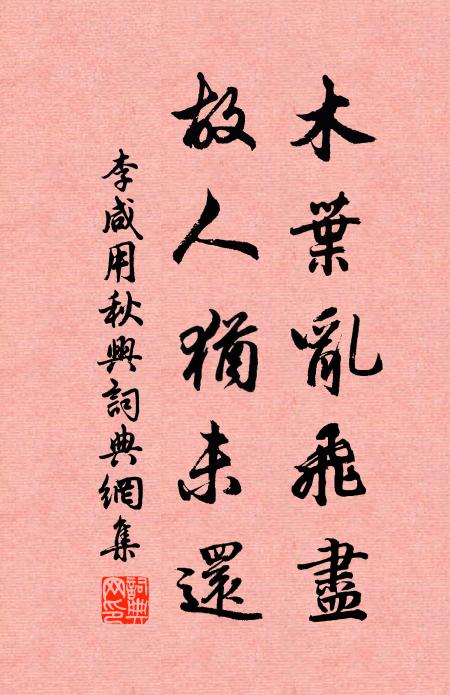 木葉亂飛盡
故人猶未還
李咸用秋興詞典網集
詞典网印